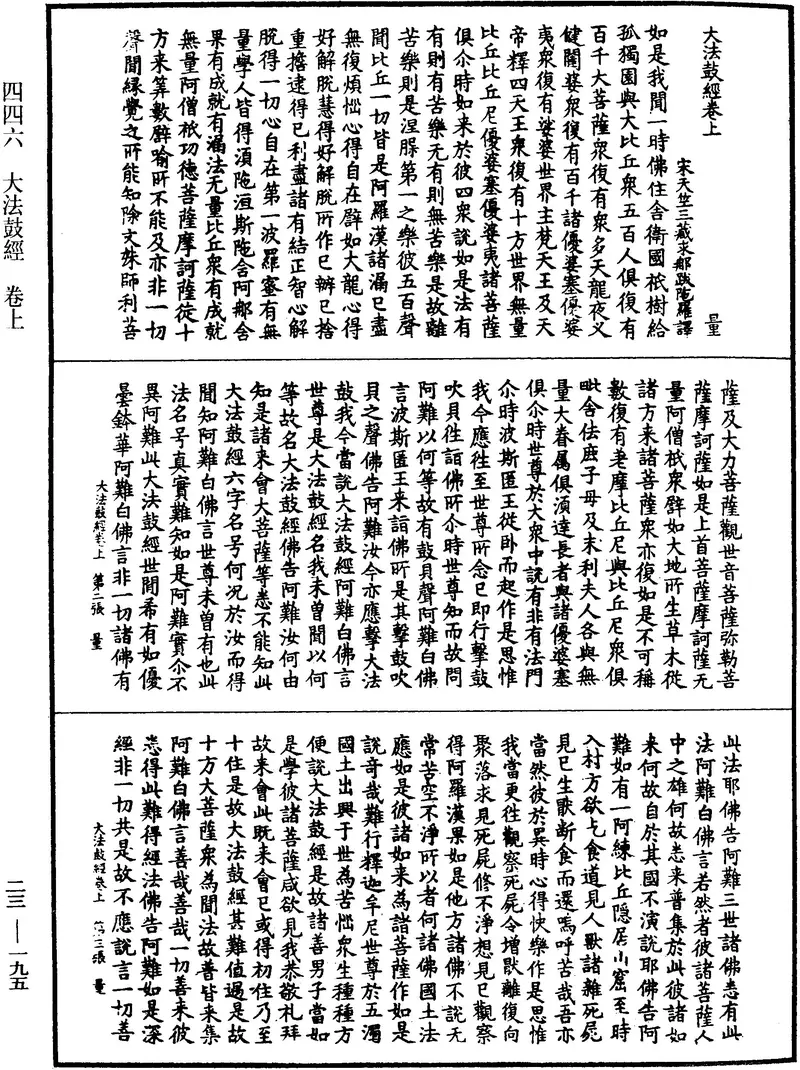 大法鼓經卷上
宋天竺三藏求那跋陁羅譯
量
如是我聞一時佛住舍衛國祇樹給
孤獨園與大比丘衆五百人俱復有
百千大菩薩衆復有衆多天龍夜叉
健闥婆衆復有百千諸優婆塞優婆
夷衆復有娑婆世界主梵天王及天
帝釋四天王衆復有十方世界無量
比丘比丘尼優婆塞優婆夷諸菩薩
俱尒時如來於彼四衆說如是法有
有則有苦樂无有則無苦樂是故離
苦樂則是涅槃第一之樂彼五百聲
聞比丘一切皆是阿羅漢諸漏已盡
無復煩惱心得自在譬如大龍心得
好解脫慧得好解脫所作已辦已捨
重擔逮得已利盡諸有結正智心解
脫得一切心自在第一波羅蜜有無
量學人皆得須陁洹斯陁含阿那含
果有成就有漏法无量比丘衆有成就
無量阿僧祇功德菩薩摩訶薩從十
方來筭數譬喻所不能及亦非一切
聲聞緣覺之所能知除文殊師利菩
薩及大力菩薩觀世音菩薩弥勒菩
薩摩訶薩如是上首菩薩摩訶薩无
量阿僧祇衆譬如大地所生草木從
諸方來諸菩薩衆亦復如是不可稱
數復有老摩比丘尼與比丘尼衆俱
毗舍佉鹿子母及末利夫人各與無
量大眷屬俱須達長者與諸優婆塞
俱尒時世尊於大衆中說有非有法門
尒時波斯匿王從卧而起作是思惟
我今應往至世尊所念已即行擊鼓
吹貝往詣佛所尒時世尊知而故問
阿難以何等故有鼓貝聲阿難白佛
言波斯匿王来詣佛所是其擊鼓吹
貝之聲佛告阿難汝今亦應擊大法
鼓我今當說大法鼓經阿難白佛言
世尊是大法鼓經名我未曾聞以何
等故名大法鼓經佛告阿難汝何由
知是諸来會大菩薩等悉不能知此
大法鼓經六字名号何況於汝而得
聞知阿難白佛言世尊未曾有也此
法名号真實難知如是阿難實尒不
異阿難此大法鼓經世間希有如優
曇鉢華阿難白佛言非一切諸佛有
大法鼓經卷上　第二張　量
此法耶佛告阿難三世諸佛悉有此
法阿難白佛言若然者彼諸菩薩人
中之雄何故悉来普集於此彼諸如
来何故自於其國不演說耶佛告阿
難如有一阿練比丘隱居山窟至時
入村方欲乞食道見人獸諸雜死屍
見已生猒斷食而還嗚呼苦哉吾亦
當然彼於異時心得快樂作是思惟
我當更往觀察死屍令增猒離復向
聚落求見死屍修不淨想見已觀察
得阿羅漢果如是他方諸佛不說无
常苦空不淨所以者何諸佛國土法
應如是彼諸如来為諸菩薩作如是
說奇哉難行釋迦牟尼世尊於五濁
國土出興于世為苦惱衆生種種方
便說大法鼓經是故諸善男子當如
是學彼諸菩薩咸欲見我恭敬礼拜
故来會此旣来會已或得初住乃至
十住是故大法鼓經甚難值遇是故
十方大菩薩衆為聞法故普皆来集
阿難白佛言善哉善哉一切善来彼
悉得此難得經法佛告阿難如是深
經非一切共是故不應說言一切善
大法鼓經卷上　第三張　量
四四六　大法鼓經　卷上
二三—一九五